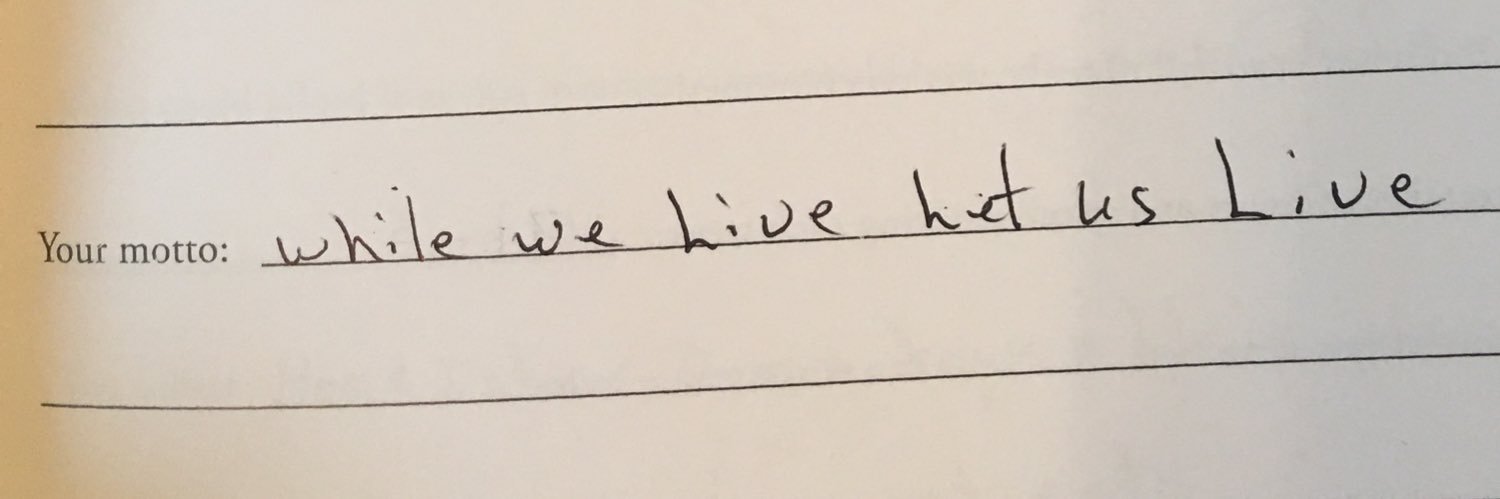 Your motto: while we Live Let us Live